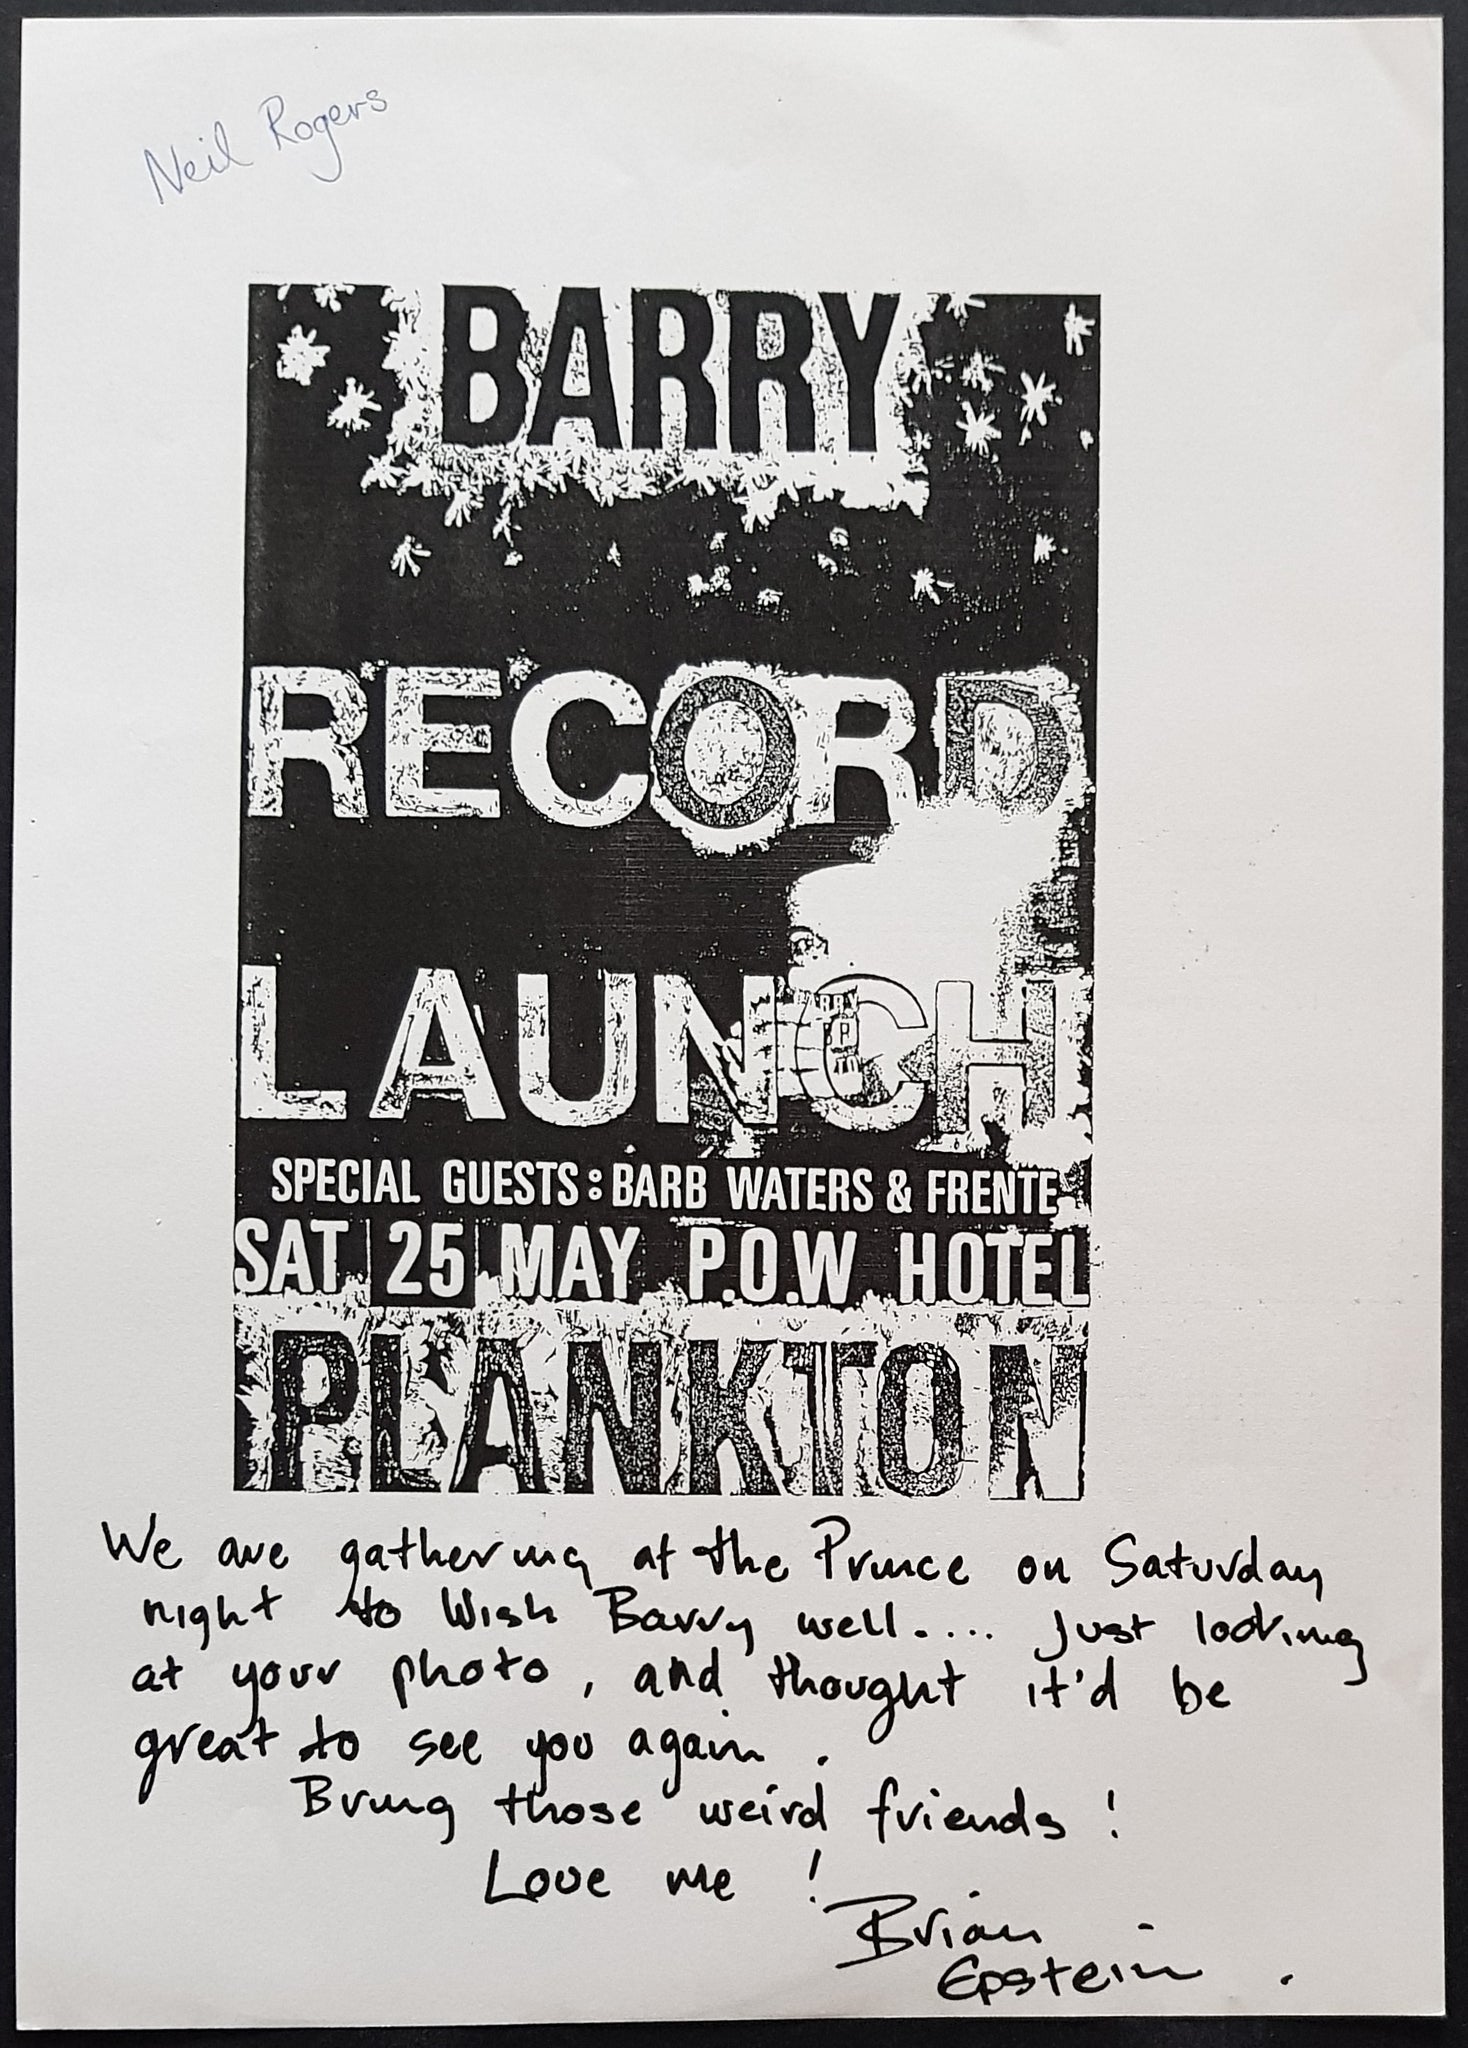 Neil Rogers
BARRY
RECORD
LAUNCH
SPECIAL GUESTS: BARB WATERS & FRENTE
SAT 25 MAY P.O.W HOTEL
PLANKTON
We are gathering at the Prince on Saturday
night to Wish Barry well.... Just looking
at your photo, and thought it'd be
great to see you again.
Bring those weird friends!
Love me!
Brian
Epstein.